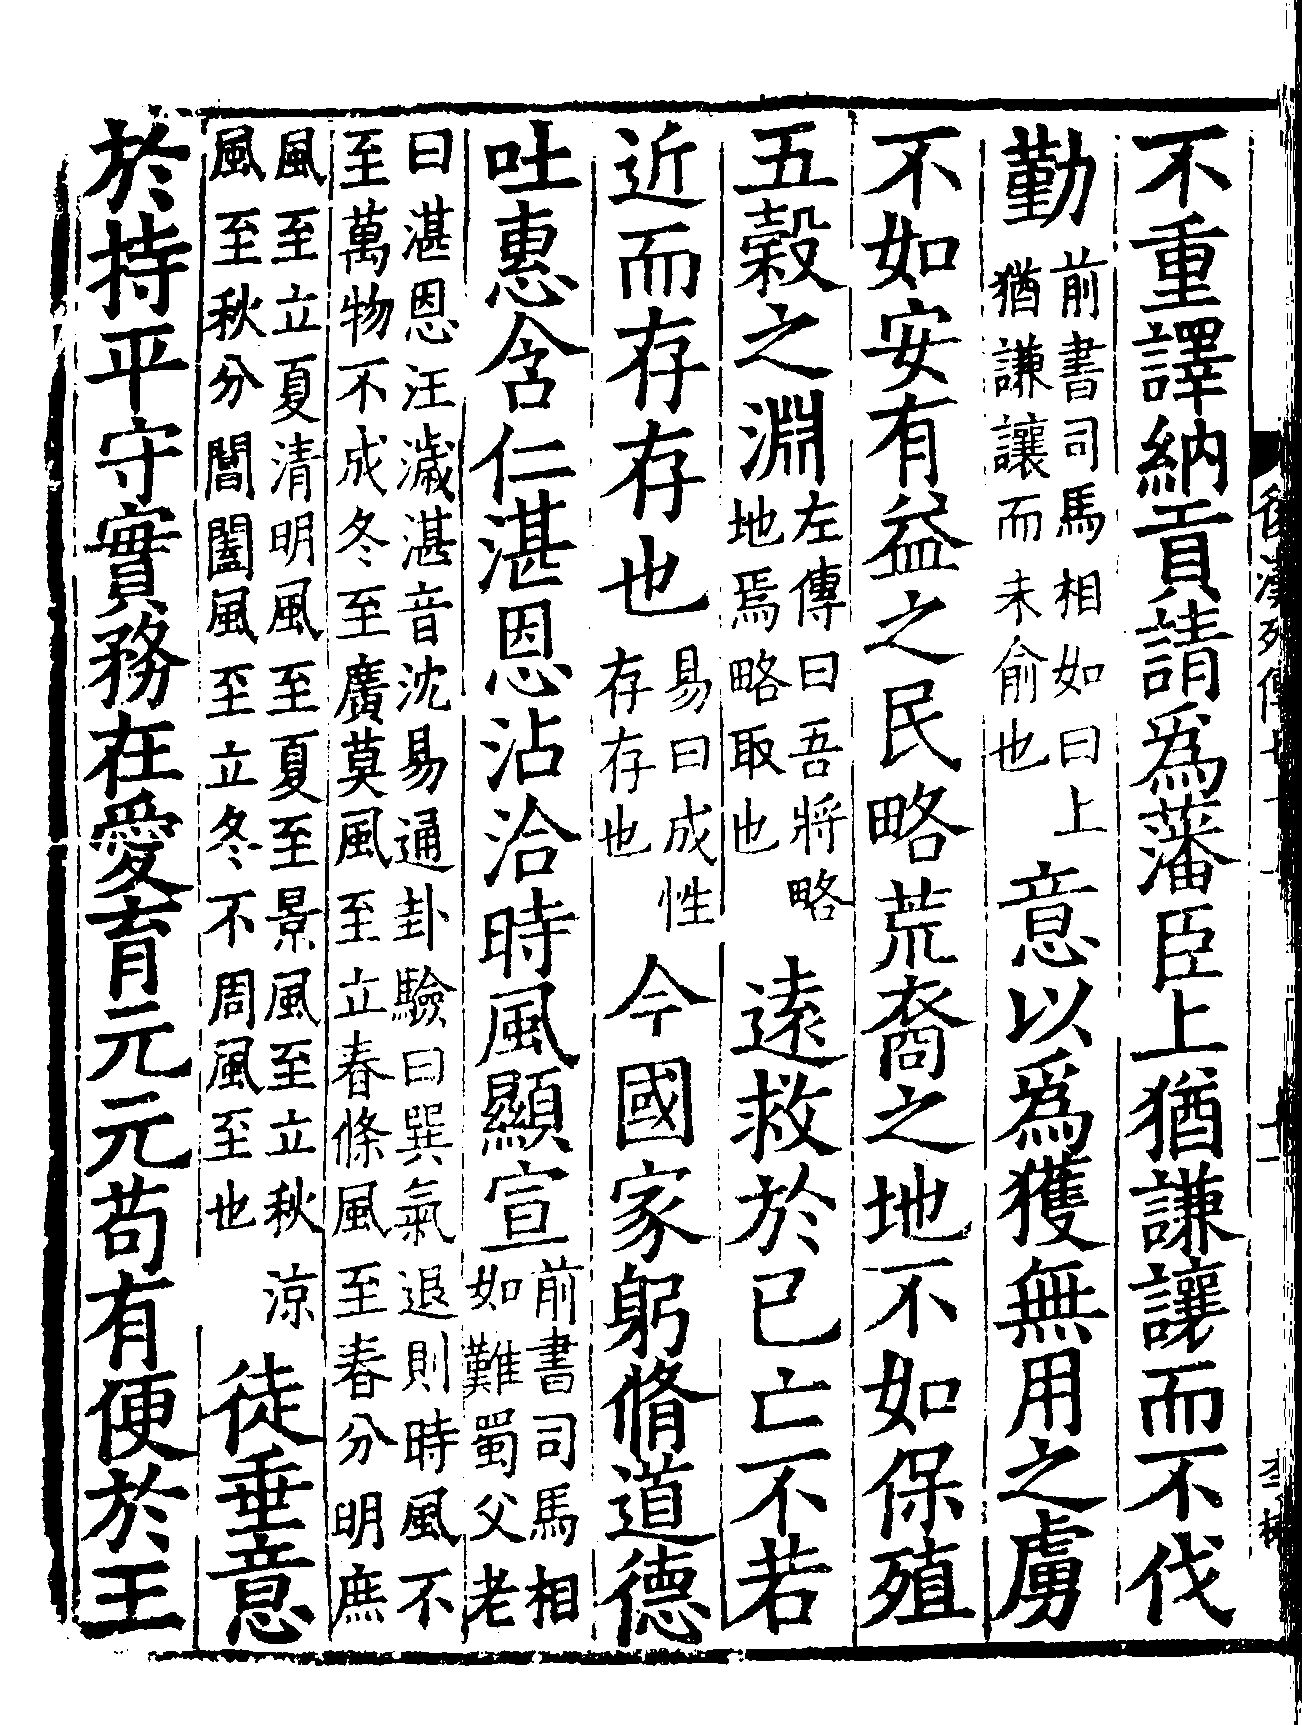 不重譯納貢請爲藩臣上猶謙讓而不伐
勤前書司馬相如曰上猶謙讓而未俞也意以爲獲無用之虜
不如安有益之民略荒裔之地不如保殖
五穀之淵左傳曰吾將略地焉略取也遠救於已亡不若
近而存存也易曰成性存存也今國家躬脩道德
吐惠含仁湛恩沾洽時風顯宣前書司馬相如難蜀父老
曰湛恩汪濊湛音沈易通卦驗曰巽氣退則時風不
至萬物不成冬至廣莫風至立春條風至春分明庶
風至立夏清明風至夏至景風至立秋涼
風至秋分閶闔風至立冬不周風至也徒垂意
於持平守實務在愛育元元苟有便於王
後漢列傳七十上